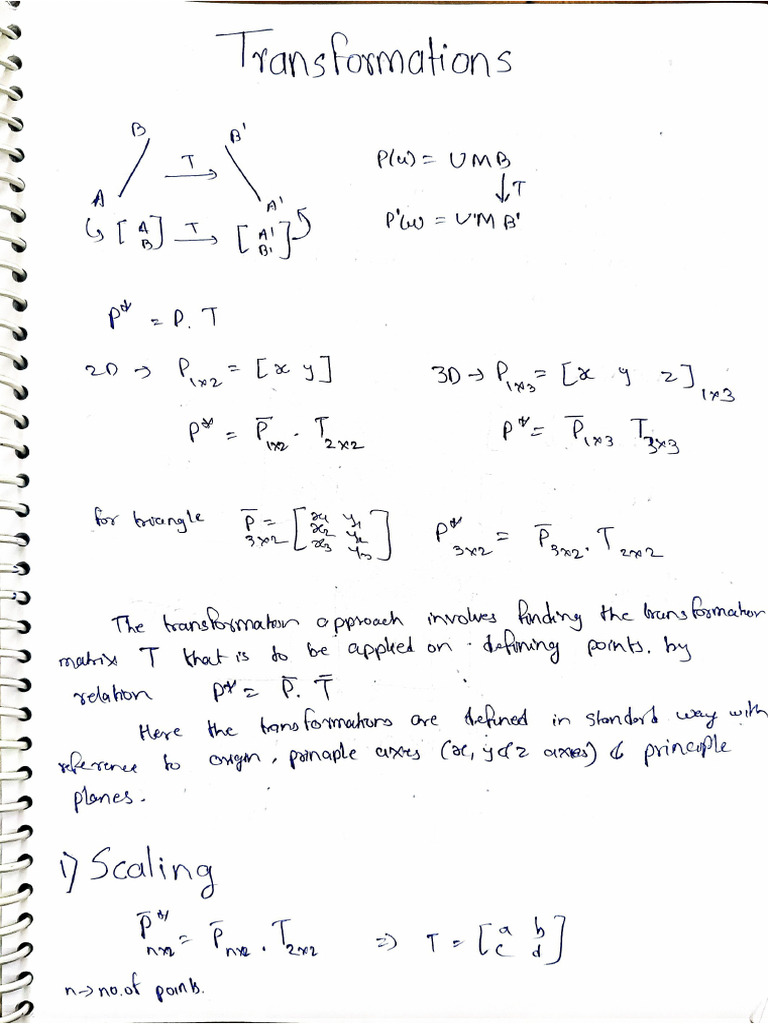 Transformations
B B'
T P(u) = U M B
↓T
A A' P'(u) = U'M B'
[A B] T→ [A' B']
P* = P. T
2D → P1x2 = [x y] 3D → P1x3 = [x y z]1x3
P* = P̄1x2 . T2x2 P* = P̄1x3 T3x3
for triangle P̄3x2 = [x1 y1 x2 y2 x3 y3] P*3x2 = P̄3x2 . T2x2
The transformation approach involves finding the transformation
matrix T that is to be applied on defining points. by
relation P* = P̄. T̿
Here the transformations are defined in standard way with
reference to origin, principle axes (x, y & z axes) & principle
planes.
1) Scaling
P̄*nx2 = P̄nx2 . T2x2 ⇒ T = [a b c d]
n → no. of points.